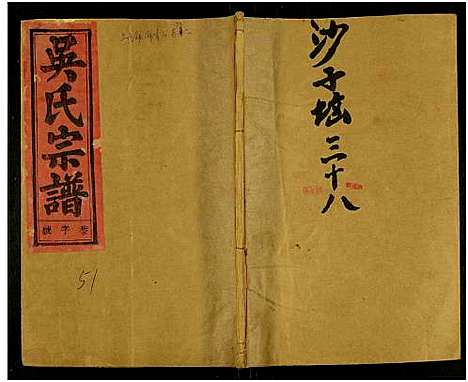 吳氏宗譜
卷字號
51
沙子垅三十八